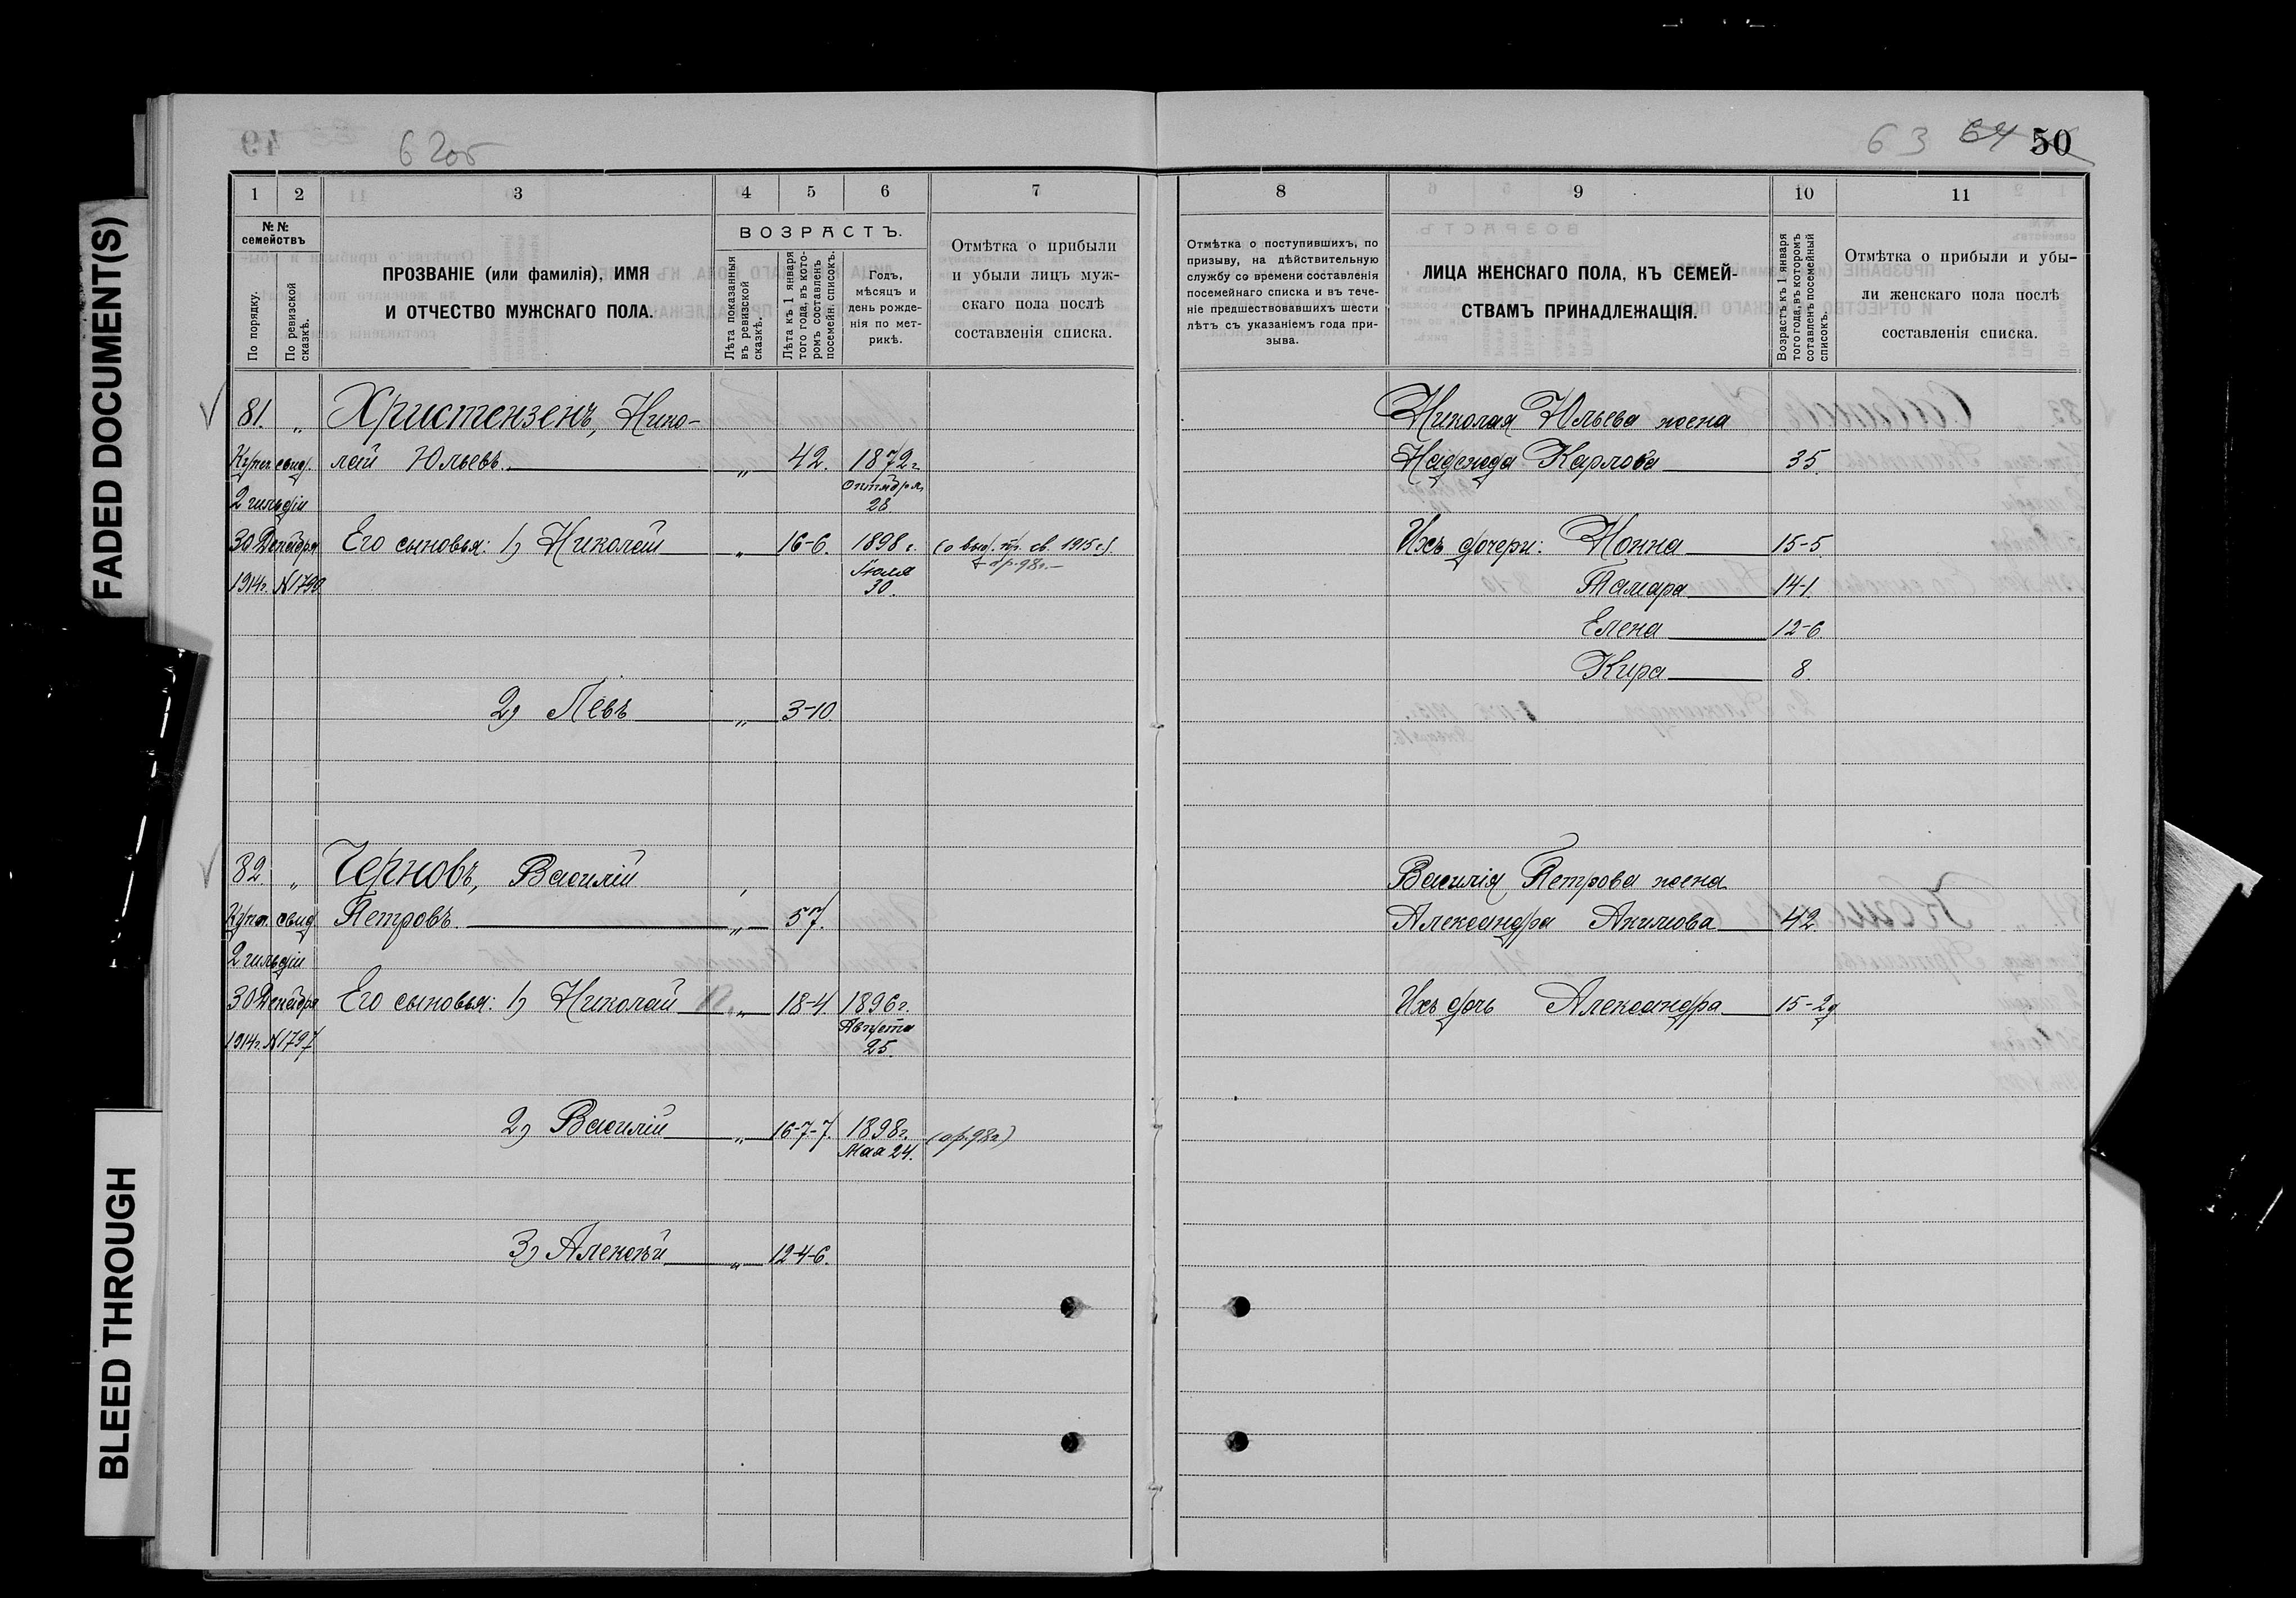 FADED DOCUMENT(S)
BLEED THROUGH
62об
63 64 50
1 2 3 4 5 6 7
№ №
семействъ
По порядку.
По ревизской
сказкѣ.
ПРОЗВАНІЕ (или фамилія), ИМЯ
И ОТЧЕСТВО МУЖСКАГО ПОЛА.
ВОЗРАСТЪ.
Лѣта показанныя
въ ревизской
сказкѣ.
Лѣта къ 1 января
того года, въ кото-
ромъ составленъ
посемейн. списокъ.
Годъ,
мѣсяцъ и
день рожде-
нія по мет-
рикѣ.
Отмѣтка о прибыли
и убыли лицъ муж-
скаго пола послѣ
составленія списка.
81. „ Христензенъ, Нико-
Купеч. свид. лай Юльевъ. „ 42. 1872 г.
2 гильдіи октября
28
30 Декабря Его сыновья: 1) Николай „ 16-6. 1898 г. (о выд. пр. св. 1915 г.)
1914 г. № 1790 Іюля
30.
2) Левъ „ 3-10.
82. „ Черновъ, Василій
Купеч. свид. Петровъ. „ 57.
2 гильдіи
30 Декабря Его сыновья: 1) Николай „ 18-4. 1896 г.
1914 г. № 1797 Августа
25.
2) Василій „ 16-7-7. 1898 г. (ар. 98 г.)
Мая 24.
3) Алексѣй „ 12-4-6.
8 9 10 11
Отмѣтка о поступившихъ, по
призыву, на дѣйствительную
службу со времени составленія
посемейнаго списка и въ тече-
ніе предшествовавшихъ шести
лѣтъ съ указаніемъ года при-
зыва.
ЛИЦА ЖЕНСКАГО ПОЛА, КЪ СЕМЕЙ-
СТВАМЪ ПРИНАДЛЕЖАЩІЯ.
Возрастъ къ 1 января
того года, въ которомъ
сотавленъ посемейный
списокъ.
Отмѣтка о прибыли и убы-
ли женскаго пола послѣ
составленія списка.
Николая Юльева жена
Надежда Карлова 35.
Ихъ дочери: Нонна 15-5.
Тамара 14-1.
Елена 12-6.
Кира 8.
Василія Петрова жена
Александра Акимова 42.
Ихъ дочь Александра 15-2